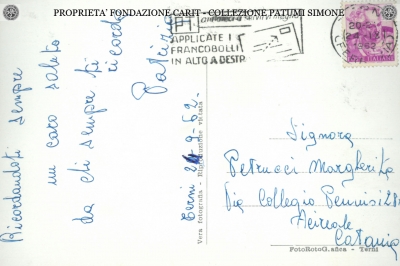 PROPRIETA' FONDAZIONE CARIT - COLLEZIONE PATUMI SIMONE
APPLICATE I
FRANCOBOLLI
IN ALTO A DESTR
Ricordandoti sempre
un caro saluto
da chi sempre ti
ricorda
Patrizia
Terni 2 -9-62-
Vera fotografia - Riproduzione vietata
Signora
Petrucci Margherita
Via Collegio Pennisi 28
Acireale
Catania
FotoRotoG.afica - Terni